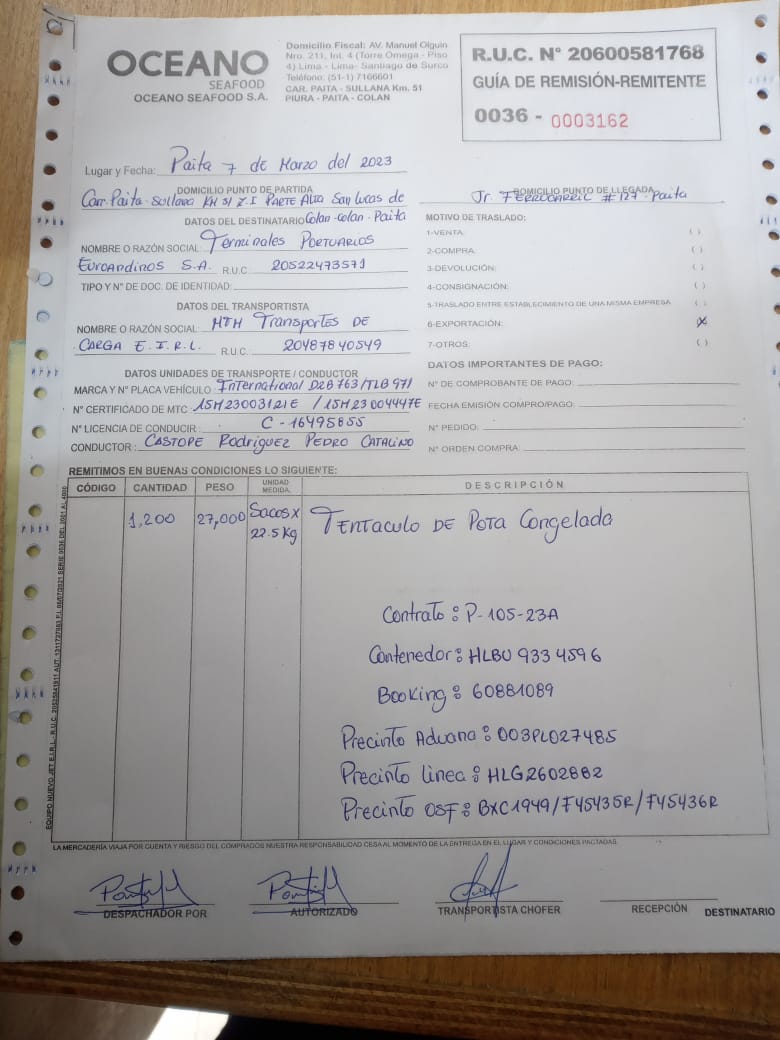 OCEANO
SEAFOOD
OCEANO SEAFOOD S.A.
Domicilio Fiscal: AV. Manuel Olguin
Nro. 211, Int. 4 (Torre Omega - Piso
4) Lima - Lima- Santiago de Surco
Teléfono: (51-1) 7166601
CAR. PAITA - SULLANA Km. 51
PIURA - PAITA - COLAN
R.U.C. N° 20600581768
GUÍA DE REMISIÓN-REMITENTE
0036 - 0003162
Lugar y Fecha: Paita 7 de Marzo del 2023
DOMICILIO PUNTO DE PARTIDA
Carr. Paita-Sullana KM 51 Z.I PARTE Alta San Lucas de
Colan-Colan-Paita
DOMICILIO PUNTO DE LLEGADA
Jr. FERROCARRIL #127-Paita
DATOS DEL DESTINATARIO
NOMBRE O RAZÓN SOCIAL: Terminales Portuarios
Euroandinos S.A. R.U.C. 20522473571
TIPO Y N° DE DOC. DE IDENTIDAD:
DATOS DEL TRANSPORTISTA
NOMBRE O RAZÓN SOCIAL: MTM Transportes DE
CARGA E.I.R.L. R.U.C. 20487840549
DATOS UNIDADES DE TRANSPORTE / CONDUCTOR
MARCA Y N° PLACA VEHÍCULO: International D2B763/TLB971
N° CERTIFICADO DE MTC: 15M23003121E / 15M23004447E
N° LICENCIA DE CONDUCIR: C-16495855
CONDUCTOR: CASTOPE Rodriguez PEDRO CATALINO
MOTIVO DE TRASLADO:
1-VENTA: ( )
2-COMPRA: ( )
3-DEVOLUCIÓN: ( )
4-CONSIGNACIÓN: ( )
5-TRASLADO ENTRE ESTABLECIMIENTO DE UNA MISMA EMPRESA ( )
6-EXPORTACIÓN: (X)
7-OTROS: ( )
DATOS IMPORTANTES DE PAGO:
N° DE COMPROBANTE DE PAGO:
FECHA EMISIÓN COMPRO/PAGO:
N° PEDIDO:
N° ORDEN COMPRA:
REMITIMOS EN BUENAS CONDICIONES LO SIGUIENTE:
CÓDIGO CANTIDAD PESO UNIDAD MEDIDA. DESCRIPCIÓN
1,200 27,000 Sacos x 22.5 Kg TENTACULO DE POTA Congelada
Contrato: P-105-23A
Contenedor: HLBU 933 4596
Booking: 60881089
Precinto Aduana: 003PL027485
Precinto linea: HLG2602882
Precinto OSF: BXC1949/F45435R/F45436R
LA MERCADERÍA VIAJA POR CUENTA Y RIESGO DEL COMPRADOS NUESTRA RESPONSABILIDAD CESA AL MOMENTO DE LA ENTREGA EN EL LUGAR Y CONDICIONES PACTADAS.
DESPACHADOR POR
AUTORIZADO
TRANSPORTISTA CHOFER
RECEPCIÓN
DESTINATARIO